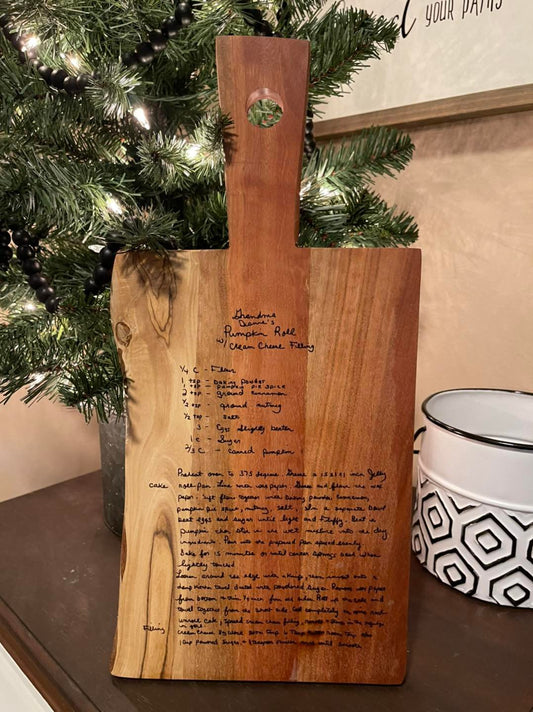 YOUR PATHS
Grandma
Diane's
Pumpkin Roll
w/ Cream Cheese Filling
3/4 C - Flour
1 tsp - baking powder
1 tsp - pumpkin pie spice
2 tsp - ground cinnamon
1/2 tsp - ground nutmeg
1/2 tsp - salt
3 - Eggs slightly beaten
1 c - Sugar
2/3 C - canned pumpkin
Preheat oven to 375 degree. Grease a 15x10x1 Jelly
cake roll pan. Line with wax paper. Grease and flour the wax
paper. Sift flour together with baking powder, cinnamon,
pumpkin pie spice, nutmeg, salt. In a separate bowl
beat eggs and sugar until light and fluffy. Beat in
pumpkin then stir in the wet mixture into the dry
ingredients. Pour into the prepared pan spread evenly
Bake for 15 minutes or until center springs back when
lightly touched
Loosen around the edge with a knife, invert onto a
towel, dusted with powdered sugar. Remove wax paper
from bottom. Roll up the cake and
towel together from the short side. Cool completely
unroll cake, spread cream cheese filling
filling Cream cheese
1 cup powdered sugar until smooth